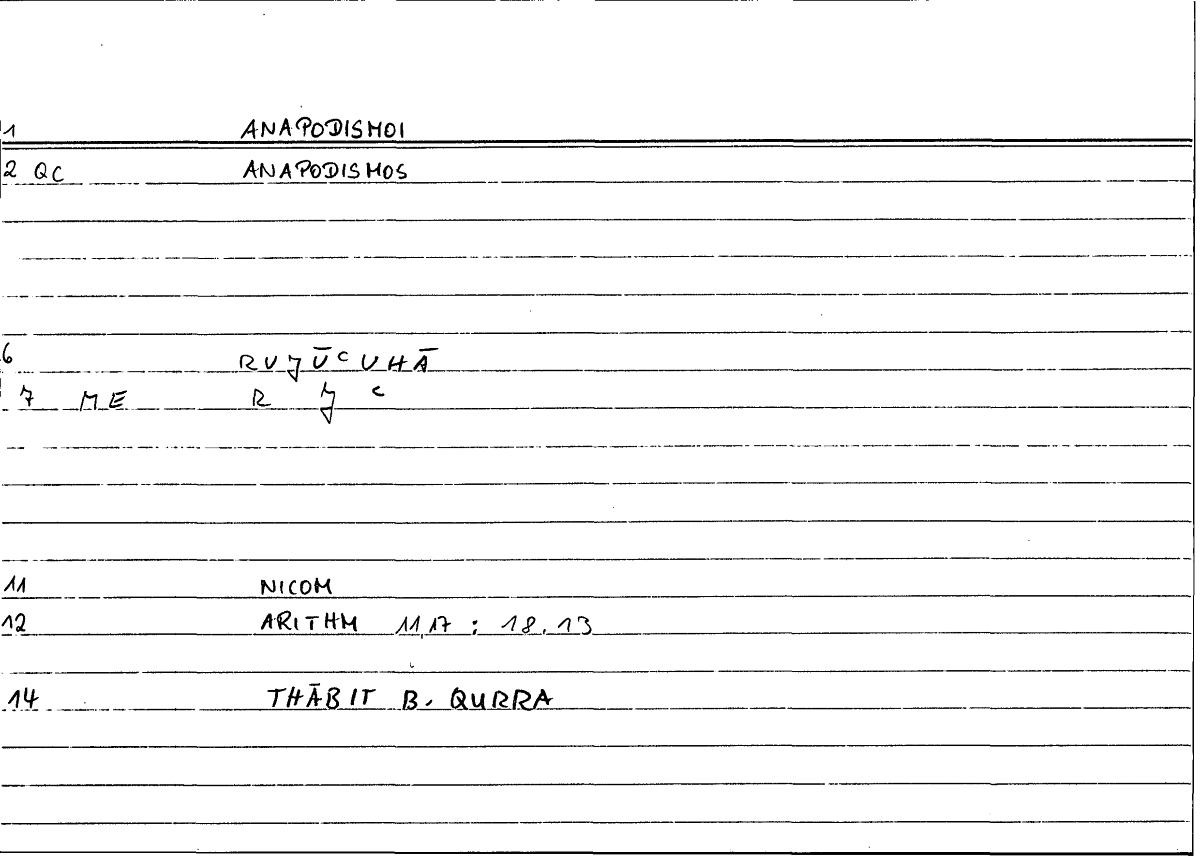 1 ANAPODISMOI
2 QC ANAPODISMOS
6 RUJŪᶜUHĀ
7 ME R J ᶜ
11 NICOM
12 ARITHM 11,17 : 18,13
14 THĀBIT B. QURRA